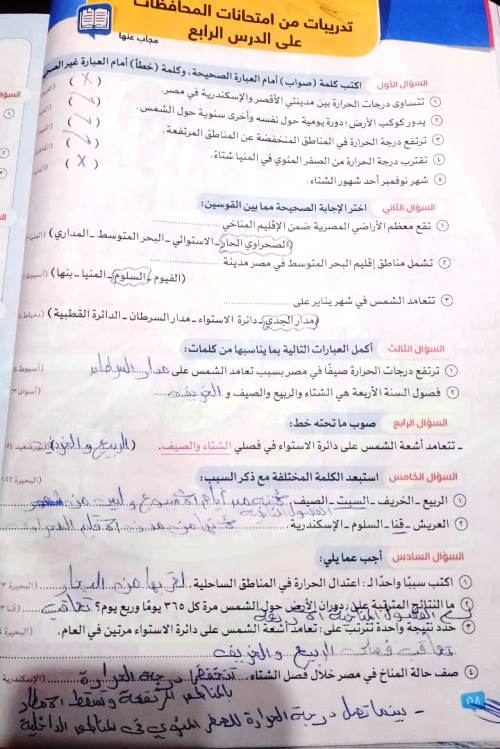 تدريبات من امتحانات المحافظات
على الدرس الرابع
مجاب عنها
السؤال الأول اكتب كلمة (صواب) أمام العبارة الصحيحة، وكلمة (خطأ) أمام العبارة غير الصحي
١ تتساوى درجات الحرارة بين مدينتي الأقصر والإسكندرية في مصر. ( X )
٢ يدور كوكب الأرض؛ دورة يومية حول نفسه وأخرى سنوية حول الشمس. ( ✓ )
٣ ترتفع درجة الحرارة في المناطق المنخفضة عن المناطق المرتفعة. ( ✓ )
٤ تقترب درجة الحرارة من الصفر المئوي في المنيا شتاءً. ( ✓ )
٥ شهر نوفمبر أحد شهور الشتاء. ( X )
السؤال الثاني اختر الإجابة الصحيحة مما بين القوسين:
١ تقع معظم الأراضي المصرية ضمن الإقليم المناخي ....................
(الصحراوي الحار - الاستوائي - البحر المتوسط - المداري)
٢ تشمل مناطق إقليم البحر المتوسط في مصر مدينة ....................
(الفيوم - السلوم - المنيا - بنها) (أسيوط
٣ تتعامد الشمس في شهر يناير على ....................
(مدار الجدي - دائرة الاستواء - مدار السرطان - الدائرة القطبية) (دمياط
السؤال الثالث أكمل العبارات التالية بما يناسبها من كلمات:
١ ترتفع درجات الحرارة صيفًا في مصر بسبب تعامد الشمس على مدار السرطان (أسيوط
٢ فصول السنة الأربعة هي الشتاء والربيع والصيف و الخريف (أسوان
السؤال الرابع صوب ما تحته خط:
- تتعامد أشعة الشمس على دائرة الاستواء في فصلي الشتاء والصيف. (الربيع والخريف)
السؤال الخامس استبعد الكلمة المختلفة مع ذكر السبب:
١ الربيع - الخريف - السبت - الصيف. من أيام الأسبوع وليست من (البحيرة
٢ العريش - قنا - السلوم - الإسكندرية.
السؤال السادس أجب عما يلي:
١ اكتب سببًا واحدًا لـ: اعتدال الحرارة في المناطق الساحلية. لقربها من البحار (البحيرة
٢ ما النتائج المترتبة على: دوران الأرض حول الشمس مرة كل ٣٦٥ يومًا وربع يوم؟ تعاقب (قنا
الفصول المناخية الأربعة
٣ حدد نتيجة واحدة تترتب على: تعامد أشعة الشمس على دائرة الاستواء مرتين في العام. (البحيرة
الربيع والخريف
٤ صف حالة المناخ في مصر خلال فصل الشتاء. تنخفض درجة الحرارة (الإسكندرية
بالمناطق المرتفعة وتسقط الأمطار
- بينما تصل درجة الحرارة للصفر المئوي في المناطق الداخلية
٥٨